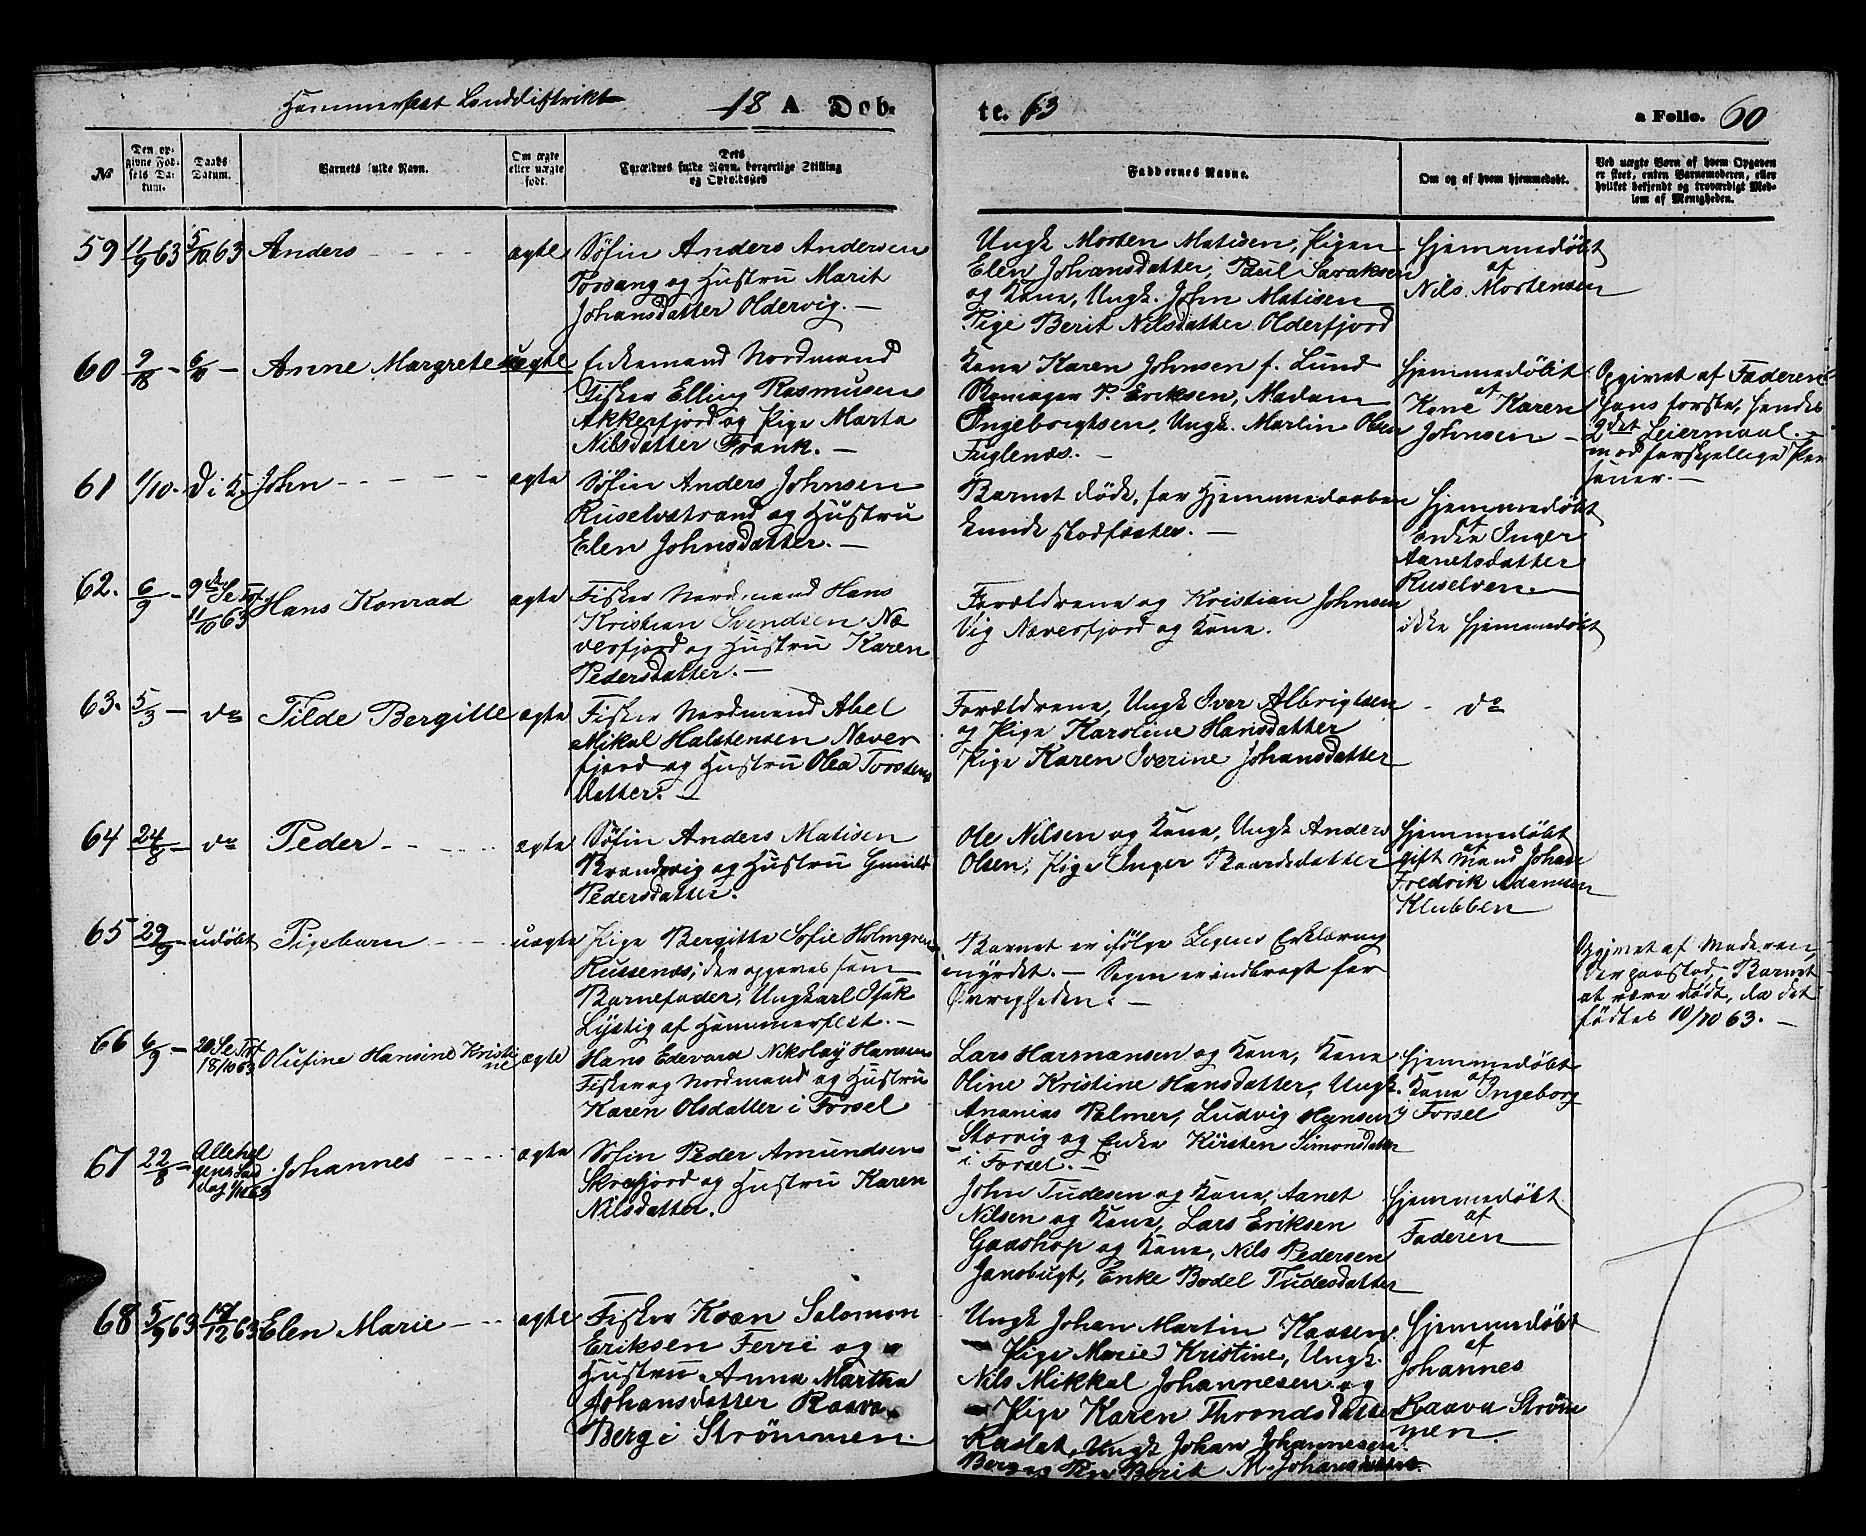 Hammerfest Landdistrikt 18 A Døb-
te. 63 a Folio. 60
No
Den opgivne Fødsels Datum.
Daabs Datum.
Barnets fulde Navn.
Om ægte eller uægte født.
Dets Forældres fulde Navn, borgerlige Stilling og Opholdssted
Faddernes Navne.
Om og af hvem hjemmedøbt.
Ved uægte Børn af hvem Opgaven er skeet, enten Barnemoderen, eller hvilket bekjendt og troværdigt Medlem af Menigheden.
59 11/9 63 5/10 63 Anders ægte
Søfin Anders Andersen
Porsang og Hustru Marit
Johansdatter Oldervig.
Ungk Morten Matisen, Pigen
Elen Johansdatter, Paul Saraksen
og Kone, Ungk. John Matisen
Pige Berit Nilsdatter Olderfjord
Hjemmedøbt
af
Nils Mortensen
60 9/18 - 6/10 - Anne Margrete uægte
Enkemand Nordmand
Fisker Elling Rasmusen
Akkerfjord og Pige Marta
Nilsdatter Frank.
Kone Karen Johnsen f. Lund
P. Eriksen, Madam
Ingebrigtsen, Ungk. Martin Olsen
Fuglenæs.
Hjemmedøbt
af
Kone Karen
Johnsen
Opgivet af Faderen
hans første, hendes
2det Leiermaal
med forskjellige Per
soner.
61 1/10 - D i K. John ægte
Søfin Anders Johnsen
Ruselvstrand og Hustru
Elen Johnsdatter.
Barnet døde, før Hjemmedaaben
kunde stadfæstes.
Hjemmedøbt
af
Enke Inger
Aanetsdatter
Ruselven.
62. 6/9 - 9de Se Tof
11/10 63 Hans Konrad ægte
Fisker Nordmand Hans
Kristian Svendsen Næ
verfjord og Hustru Karen
Pedersdatter.
Forældrene og Kristian Johnsen
Vig Næverfjord og Kone.
ikke Hjemmedøbt
63. 5/3 - do Tilde Bergitte ægte
Fisker Nordmand Abel
Mikal Halstensen Næver
fjord og Hustru Olea Torsdens
datter.
Forældrene, Ungk Iver Albrigtsen
og Pige Karoline Hansdatter
Pige Karen Iverine Johansdatter
do
64 24/8 - do Peder ægte
Søfin Anders Matisen
Brændvig og Hustru Gunild
Pedersdatter.
Ole Nilsen og Kone, Ungk Anders
Olsen, Pige Inger Baardsdatter
Hjemmedøbt
af
gift Mand Johan
Fredrik Adamsen
Klubben
65 29/9 - udøbt Pigebarn uægte
Pige Bergitte Sofie Holmgren
Russenæs; der opgives som
Barnefader, Ungkarl Isak
Lystig af Hammerfest.
Barnet er ifølge Pigens Erklæring
myrdet. - Sagen er indbragt for
Øvrigheden.
Opgivet af Moderen,
der paastod, Barnet
at være dødt, da det
fødtes 10/10 63.
66 6/9 - 20 Se Tof
18/10 63 Olufine Hansine Kristi
ne ægte
Hans Edevard Nikolay Hansen
Fisker og Nordmand og Hustru
Karen Olsdatter i Forsøl
Lars Harmansen og Kone, Kone
Oline Kristine Hansdatter, Ungk.
Ananias Palmer, Ludvig Hansen
Storvig og Enke Kirsten Simonsdatter
i Forsøl.
Hjemmedøbt
af
Kone Ingeborg
i Forsøl
67 22/8 - Allehel
gens Søn
dag 1/11 63 Johannes ægte
Søfin Peder Amundsen
Skrefjord og Hustru Karen
Nilsdatter.
John Tudesen og Kone, Aanet
Nilsen og Kone, Lars Eriksen
Gaashop og Kone, Nils Pedersen
Jansbugt, Enke Bodel Tudesdatter
Hjemmedøbt
af
Faderen
68 5/9 63 19/12 63 Elen Marie ægte
Fisker Kvæn Salomon
Eriksen Ferri og
Hustru Anna Martha
Johansdatter Raava
Berg i Strømmen.
Ungk Johan Martin Kaasen
Pige Marie Kristine, Ungk.
Nils Mikkal Johannesen og
Pige Karen Throndsdatter
Ungk Johan Johannesen
Berg og Pige Berit M. Johansdatter
Hjemmedøbt
af
Johannes
Raava Strøm
men.